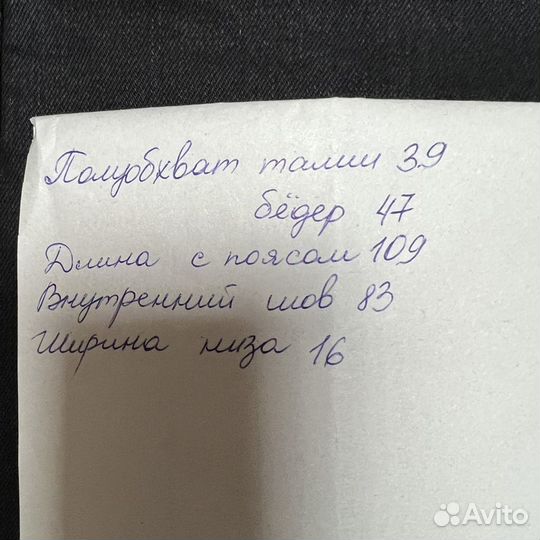 Полуобхват талии 39
бёдер 47
Длина с поясом 109
Внутренний шов 83
Ширина низа 16
Avito